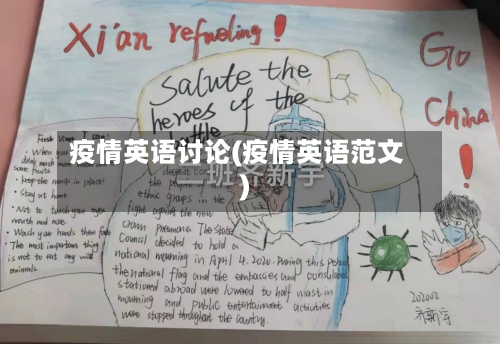 Xi'an refueling!
Go
China
!
Salute the
heroes of the
battle
疫情英语讨论(疫情英语范文
)
二班齐新宇
First
• When you
drink much more
some fruits
• keep the
• Stay at home
• Not to touch your eyes
mouth and nose
• Wash your hands
• The most important thing
is not to eat any wild
animals.
deepest
people
ethnic groups in the
fight against the new
crown Pneumonia The State
Council decided to hold a
national mourning in April 4.2020. During this period
the national flag and the embassies and consulates
stationed abroad were lowered to half mast in
mourning and public entertainment activities
were stopped throughout the country.
202002
齐新宇